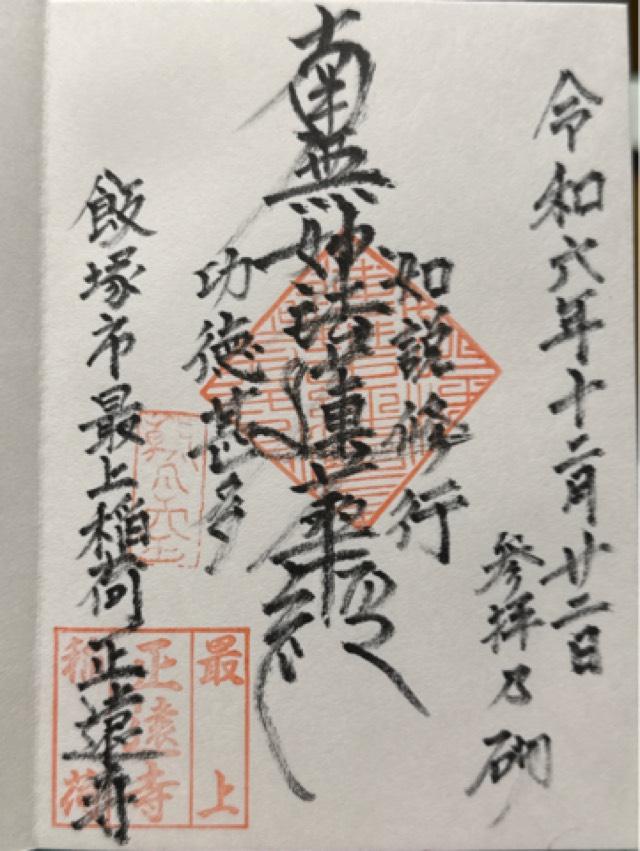 令和六年十二月廿二日
参拝乃砌
如説修行
南無妙法蓮華経
功徳甚多
飯塚市最上稲荷正遠寺
最上
正遠寺
稲荷